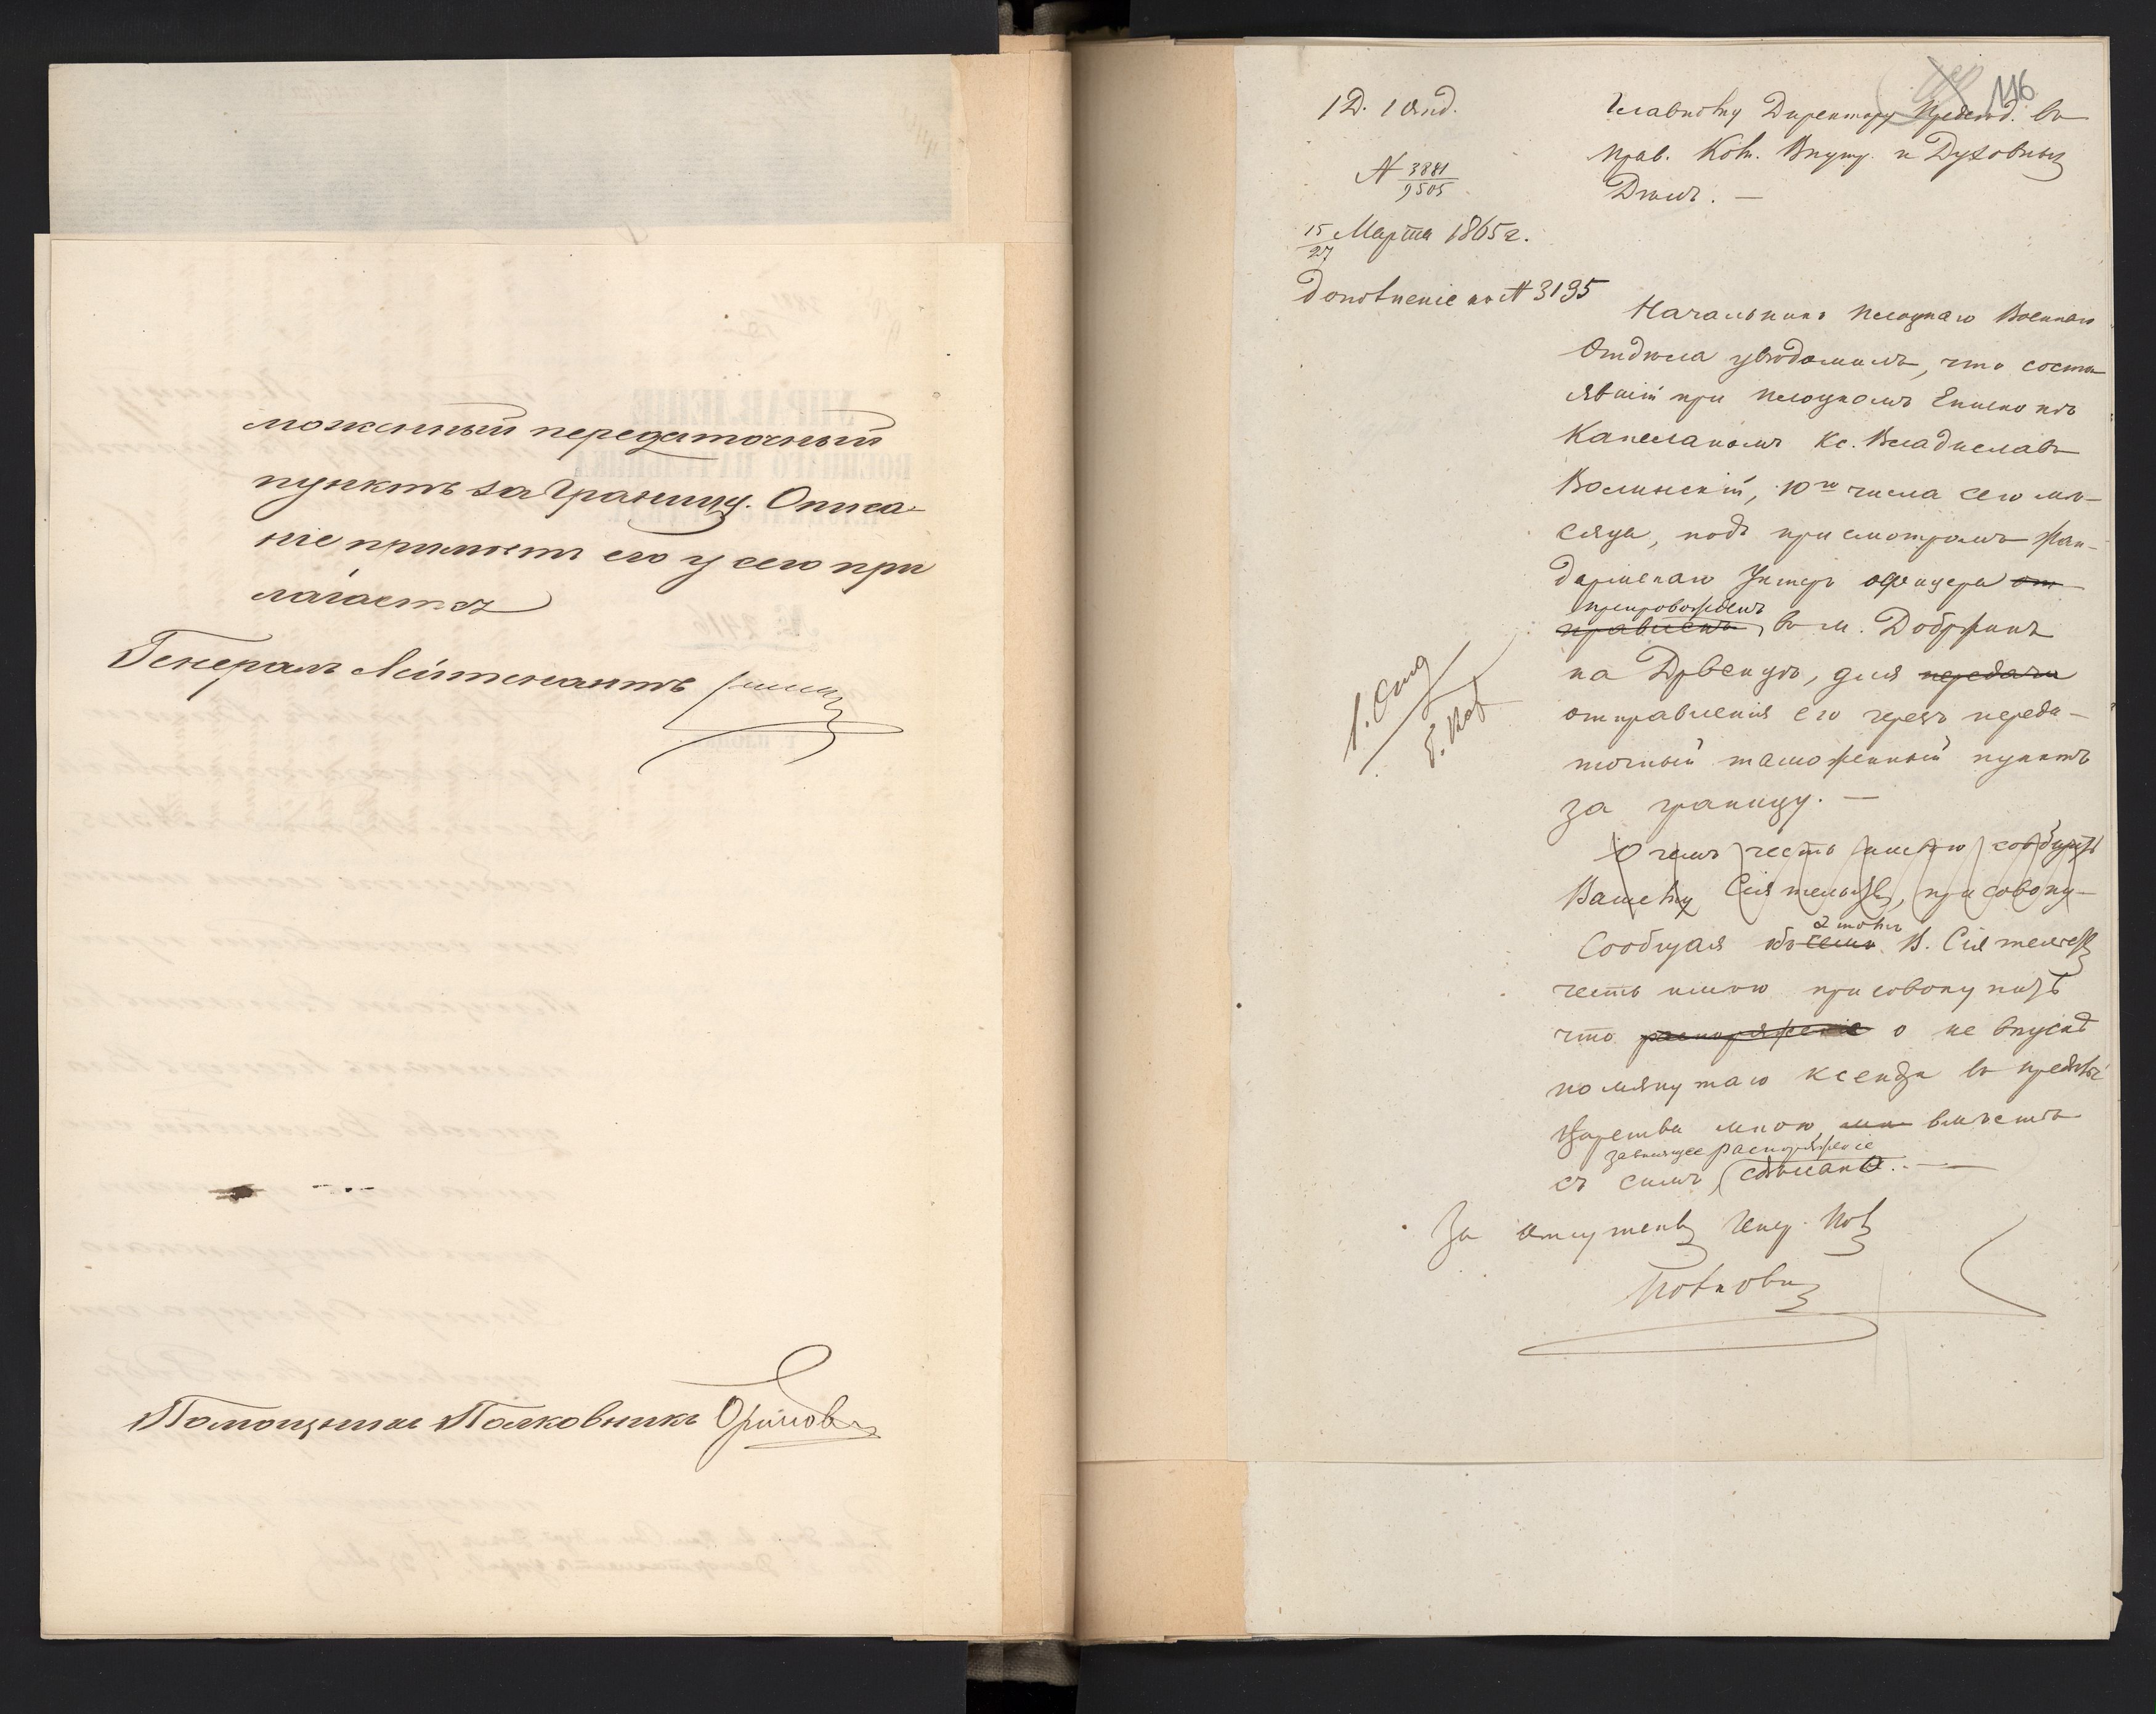 моженный передаточный
пунктъ за границу. Описа-
ніе примѣтъ его у сего при
лагается
Генералъ Лейтенантъ
Помощникъ Полковникъ
116
1 Д. 1 Отд.
N 3881/9505
15/27 Марта 1865 г.
Дополненіе къ N 3195
Главному Директору Предсѣд. въ
Прав. Ком. Внутр. и Духовныхъ
Дѣлъ. —
Начальникъ Плоцкаго Военнаго
Отдѣла увѣдомилъ, что состо
явшій при Плоцкомъ Епископѣ
Капелланомъ Кс. Владиславъ
Волинскій, 10го числа сего мѣ-
сяца, подъ присмотромъ Жан-
дармскаго Унтеръ офицера от
препровожденъ
правленъ, въ м. Добржинь
на Дрвенцѣ, для передачи
отправленія его чрезъ переда-
точный таможенный пунктъ
за границу. —
О чемъ честь имѣю сообщить
Вашему Сіятельству, присовоку-
этомъ
Сообщая объ семъ В. Сіятельству
честь имѣю присовокупить
что распоряженіе о не впускѣ
помянутаго ксендза въ предѣлы
Царства мною вмѣстѣ
зависящее распоряженіе
съ симъ сдѣлано. —
За отсутств. Генер. Пол.